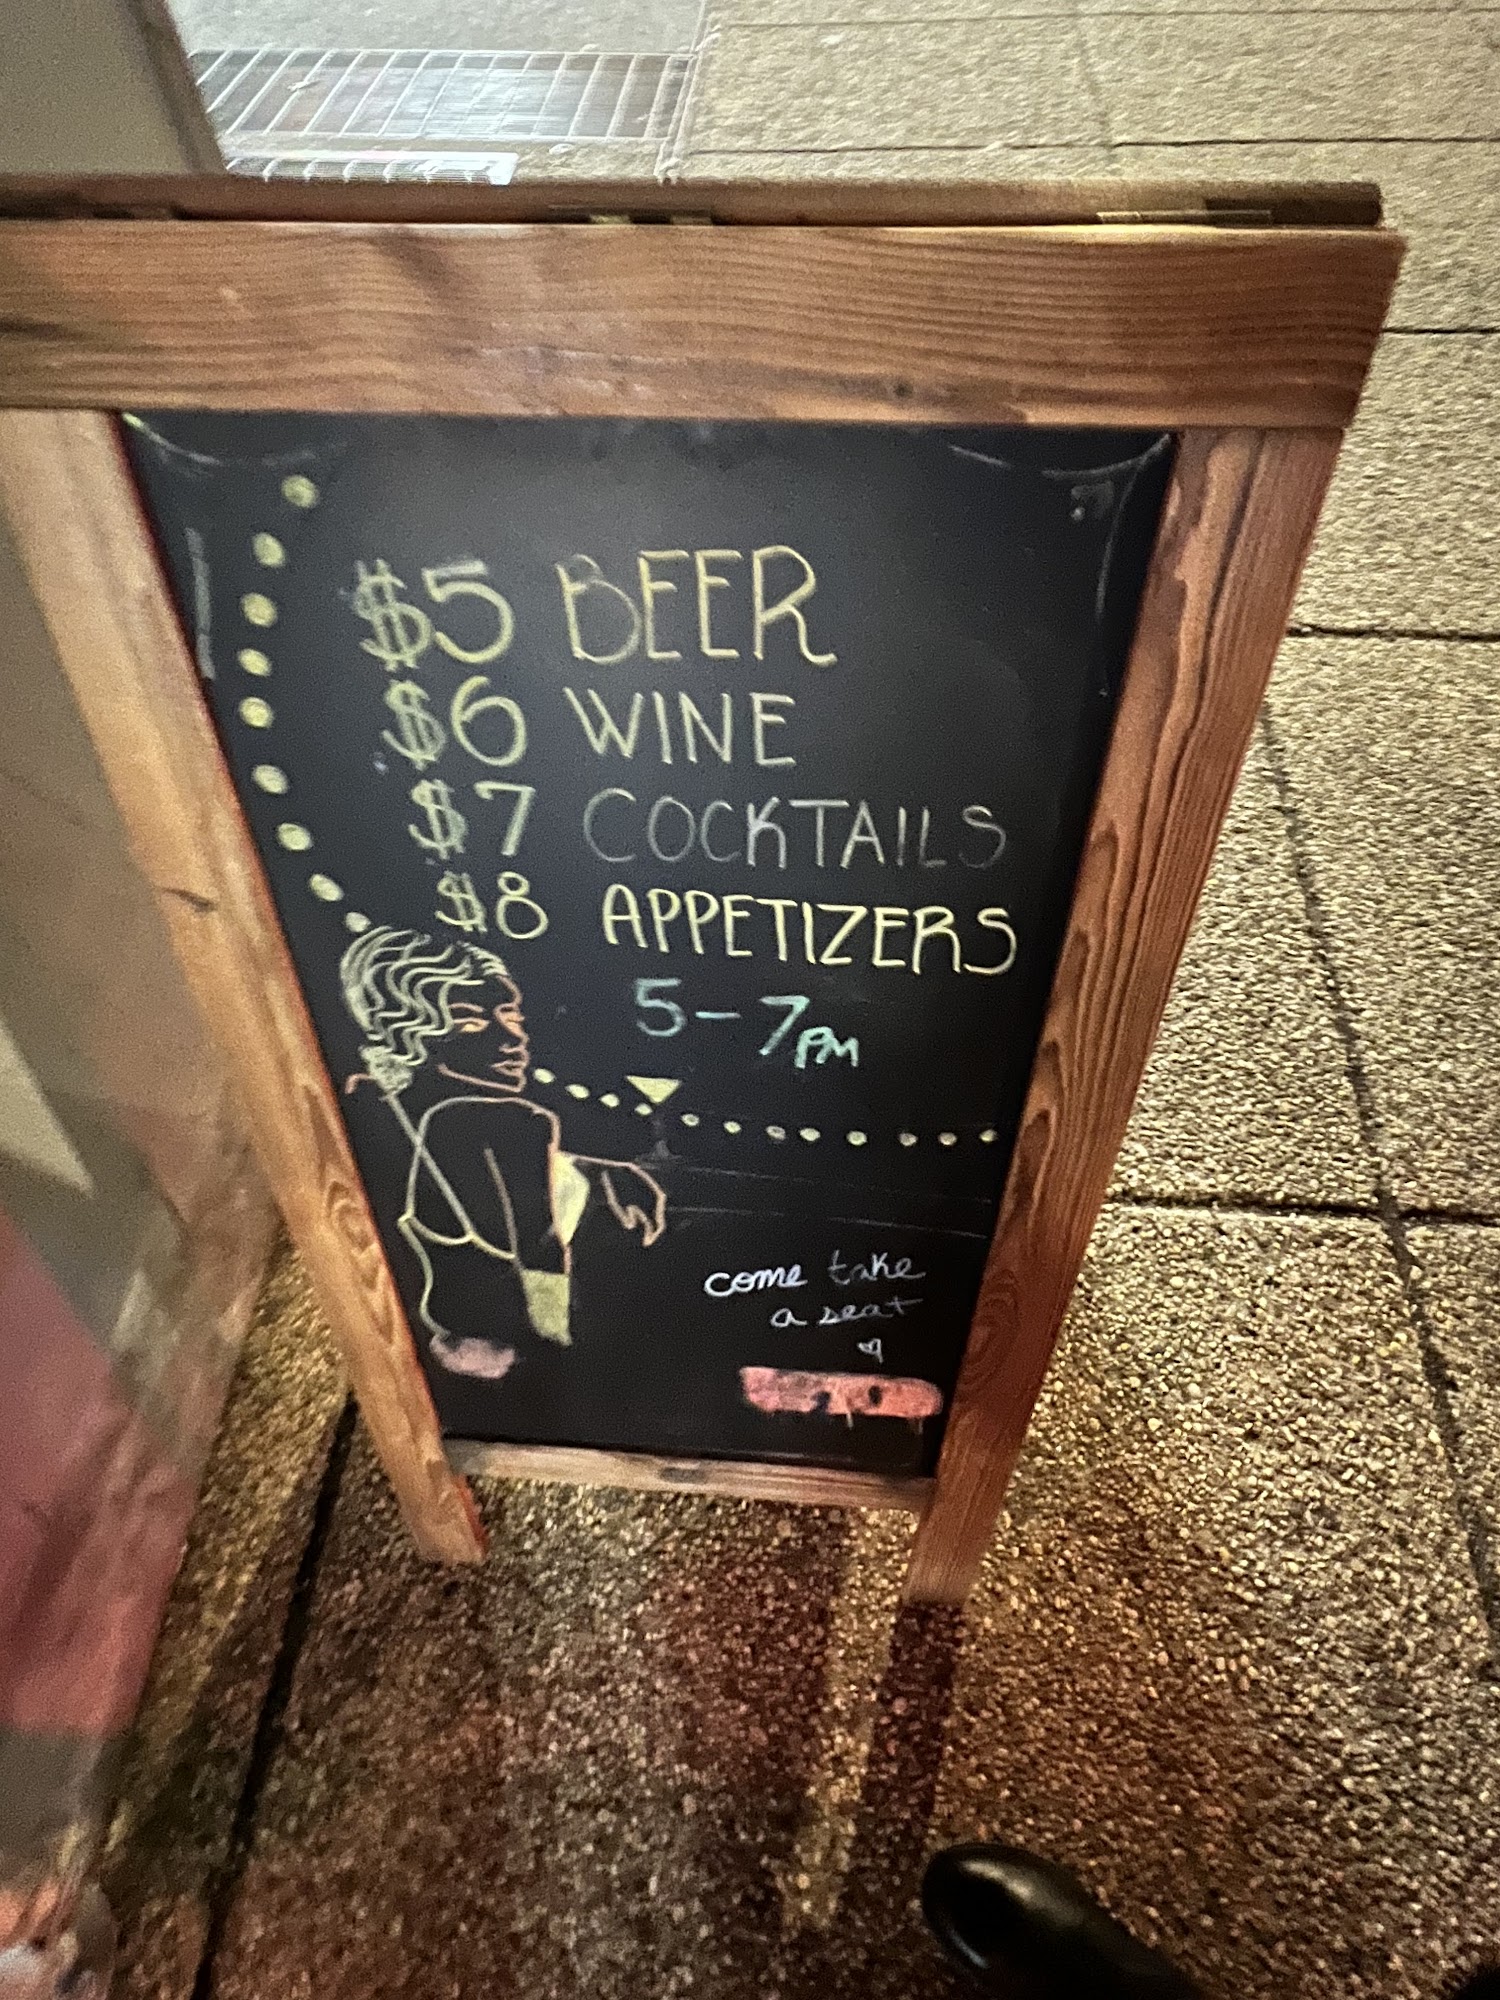 $5 BEER
$6 WINE
$7 COCKTAILS
$8 APPETIZERS
5-7PM
come take
a seat